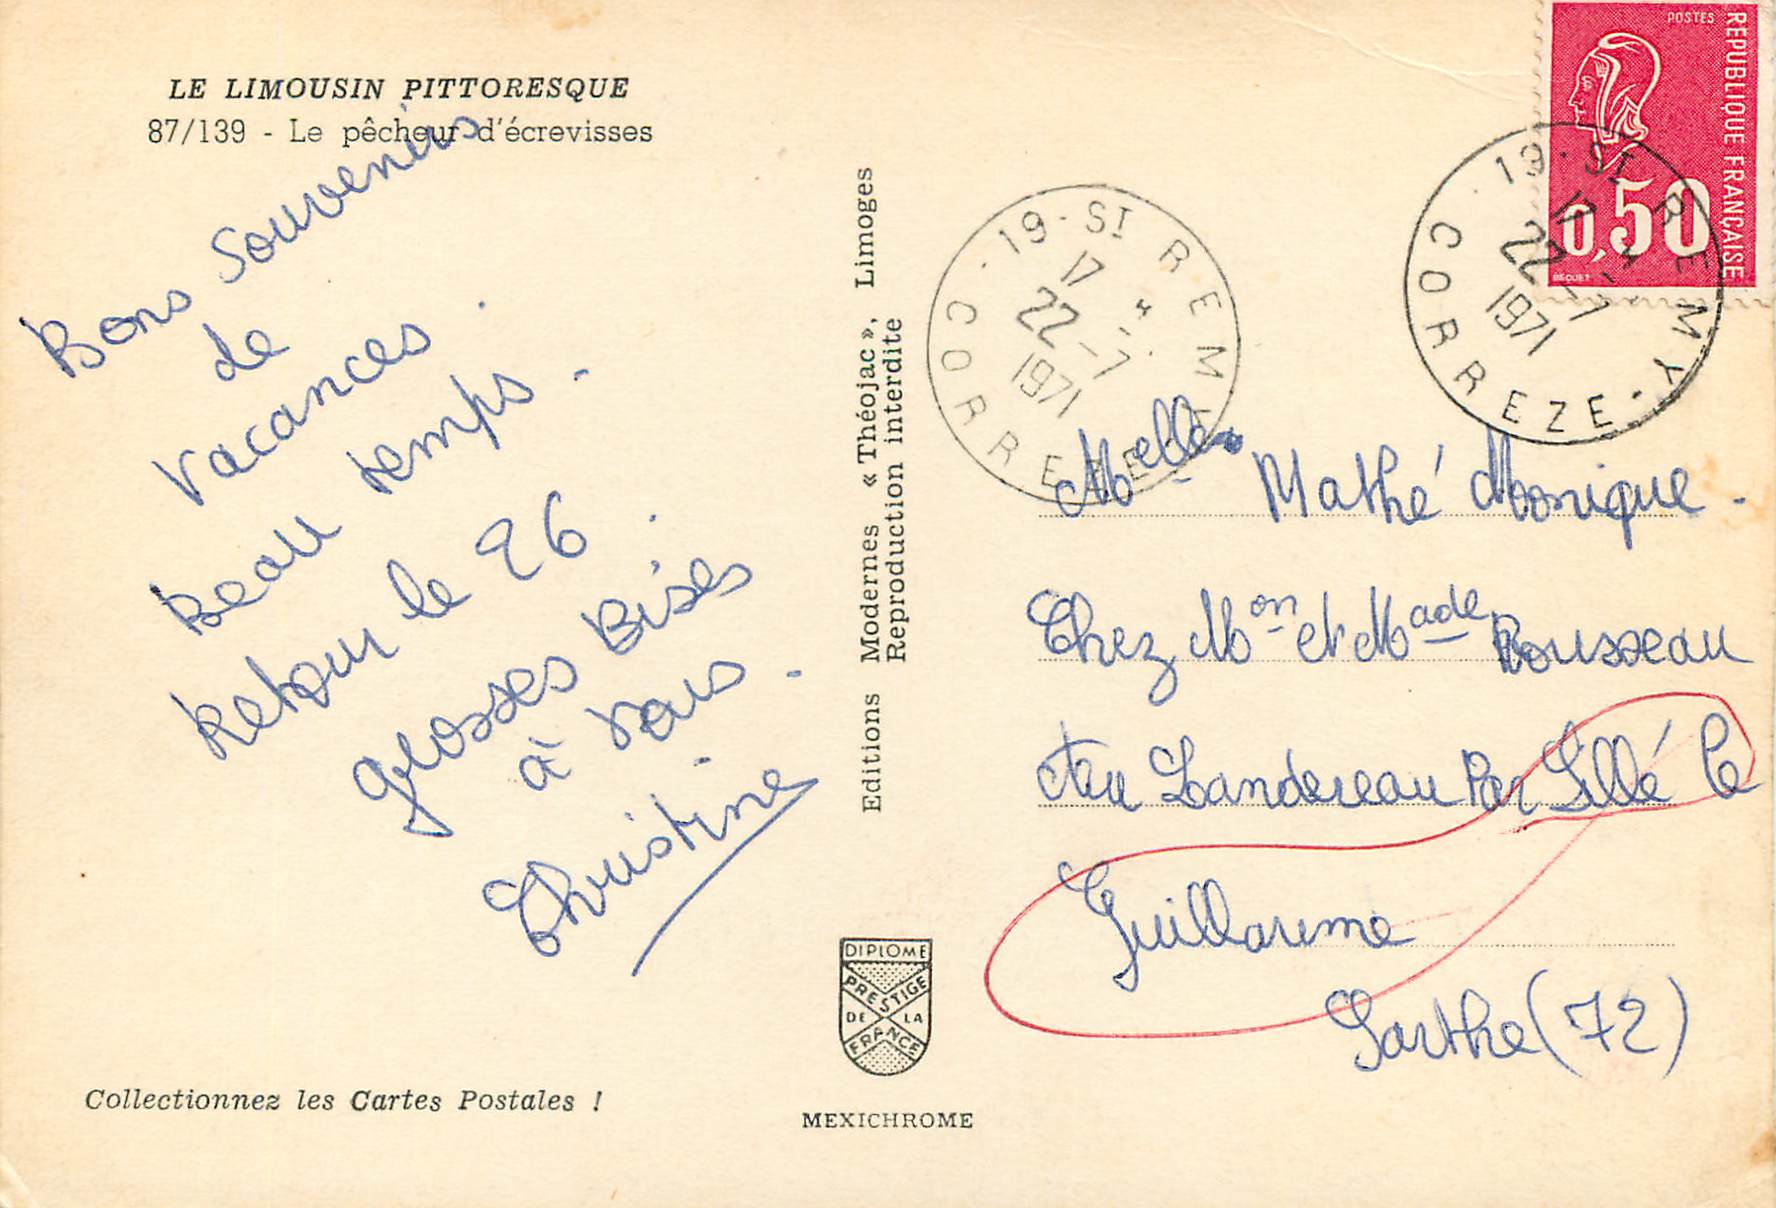 LE LIMOUSIN PITTORESQUE
87/139 - Le pêcheur d'écrevisses
Bons Souvenirs
de
Vacances.
Beau temps.
Retour le 26.
Grosses Bises
à vous.
Christine
Editions Modernes « Théojac », Limoges
Reproduction interdite
DIPLOME
PRESTIGE
DE LA
FRANCE
Collectionnez les Cartes Postales !
MEXICHROME
POSTES
REPUBLIQUE FRANÇAISE
0,50
BEQUET
19 - ST REMY
17 H
22 - 7
1971
CORREZE
19 - ST REMY -
17 H
22 - 7
1971
CORREZE
Melle Mathé Monique.
Chez Mon et Made Rousseau
Au Landereau Par Sillé le
Guillaume
Sarthe (72)